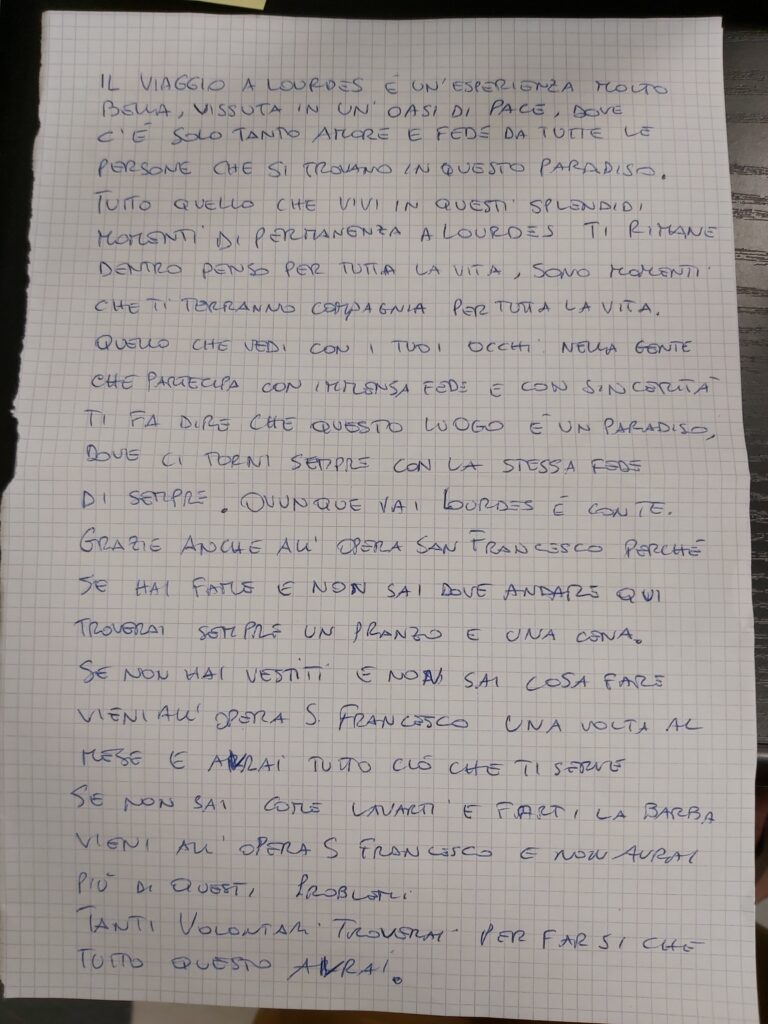 IL VIAGGIO A LOURDES È UN'ESPERIENZA MOLTO
BELLA, VISSUTA IN UN'OASI DI PACE, DOVE
C'È SOLO TANTO AMORE E FEDE DA TUTTE LE
PERSONE CHE SI TROVANO IN QUESTO PARADISO.
TUTTO QUELLO CHE VIVI IN QUESTI SPLENDIDI
MOMENTI DI PERMANENZA A LOURDES TI RIMANE
DENTRO PENSO PER TUTTA LA VITA, SONO MOMENTI
CHE TI TERRANNO COMPAGNIA PER TUTTA LA VITA.
QUELLO CHE VEDI CON I TUOI OCCHI NELLA GENTE
CHE PARTECIPA CON IMMENSA FEDE E CON SINCERITÀ
TI FA DIRE CHE QUESTO LUOGO È UN PARADISO,
DOVE CI TORNI SEMPRE CON LA STESSA FEDE
DI SEMPRE. OVUNQUE VAI LOURDES È CON TE.
GRAZIE ANCHE ALL'OPERA SAN FRANCESCO PERCHÉ
SE HAI FAME E NON SAI DOVE ANDARE QUI
TROVERAI SEMPRE UN PRANZO E UNA CENA.
SE NON HAI VESTITI E NON SAI COSA FARE
VIENI ALL'OPERA S. FRANCESCO UNA VOLTA AL
MESE E AVRAI TUTTO CIÒ CHE TI SERVE
SE NON SAI COME LAVARTI E FARTI LA BARBA
VIENI ALL'OPERA S FRANCESCO E NON AVRAI
PIÙ DI QUESTI PROBLEMI
TANTI VOLONTARI TROVERAI PER FAR SI CHE
TUTTO QUESTO AVRAI.